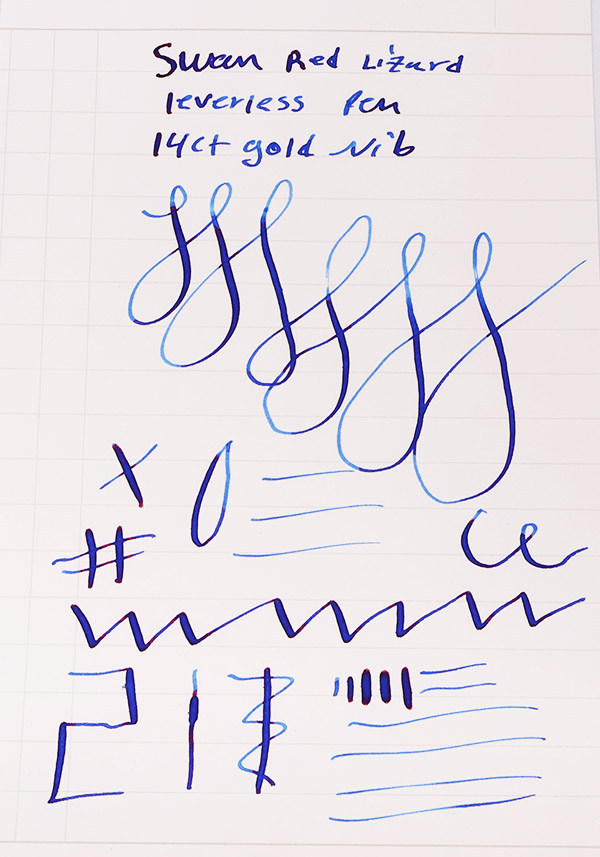 Swan Red Lizard
leverless Pen
14ct gold Nib